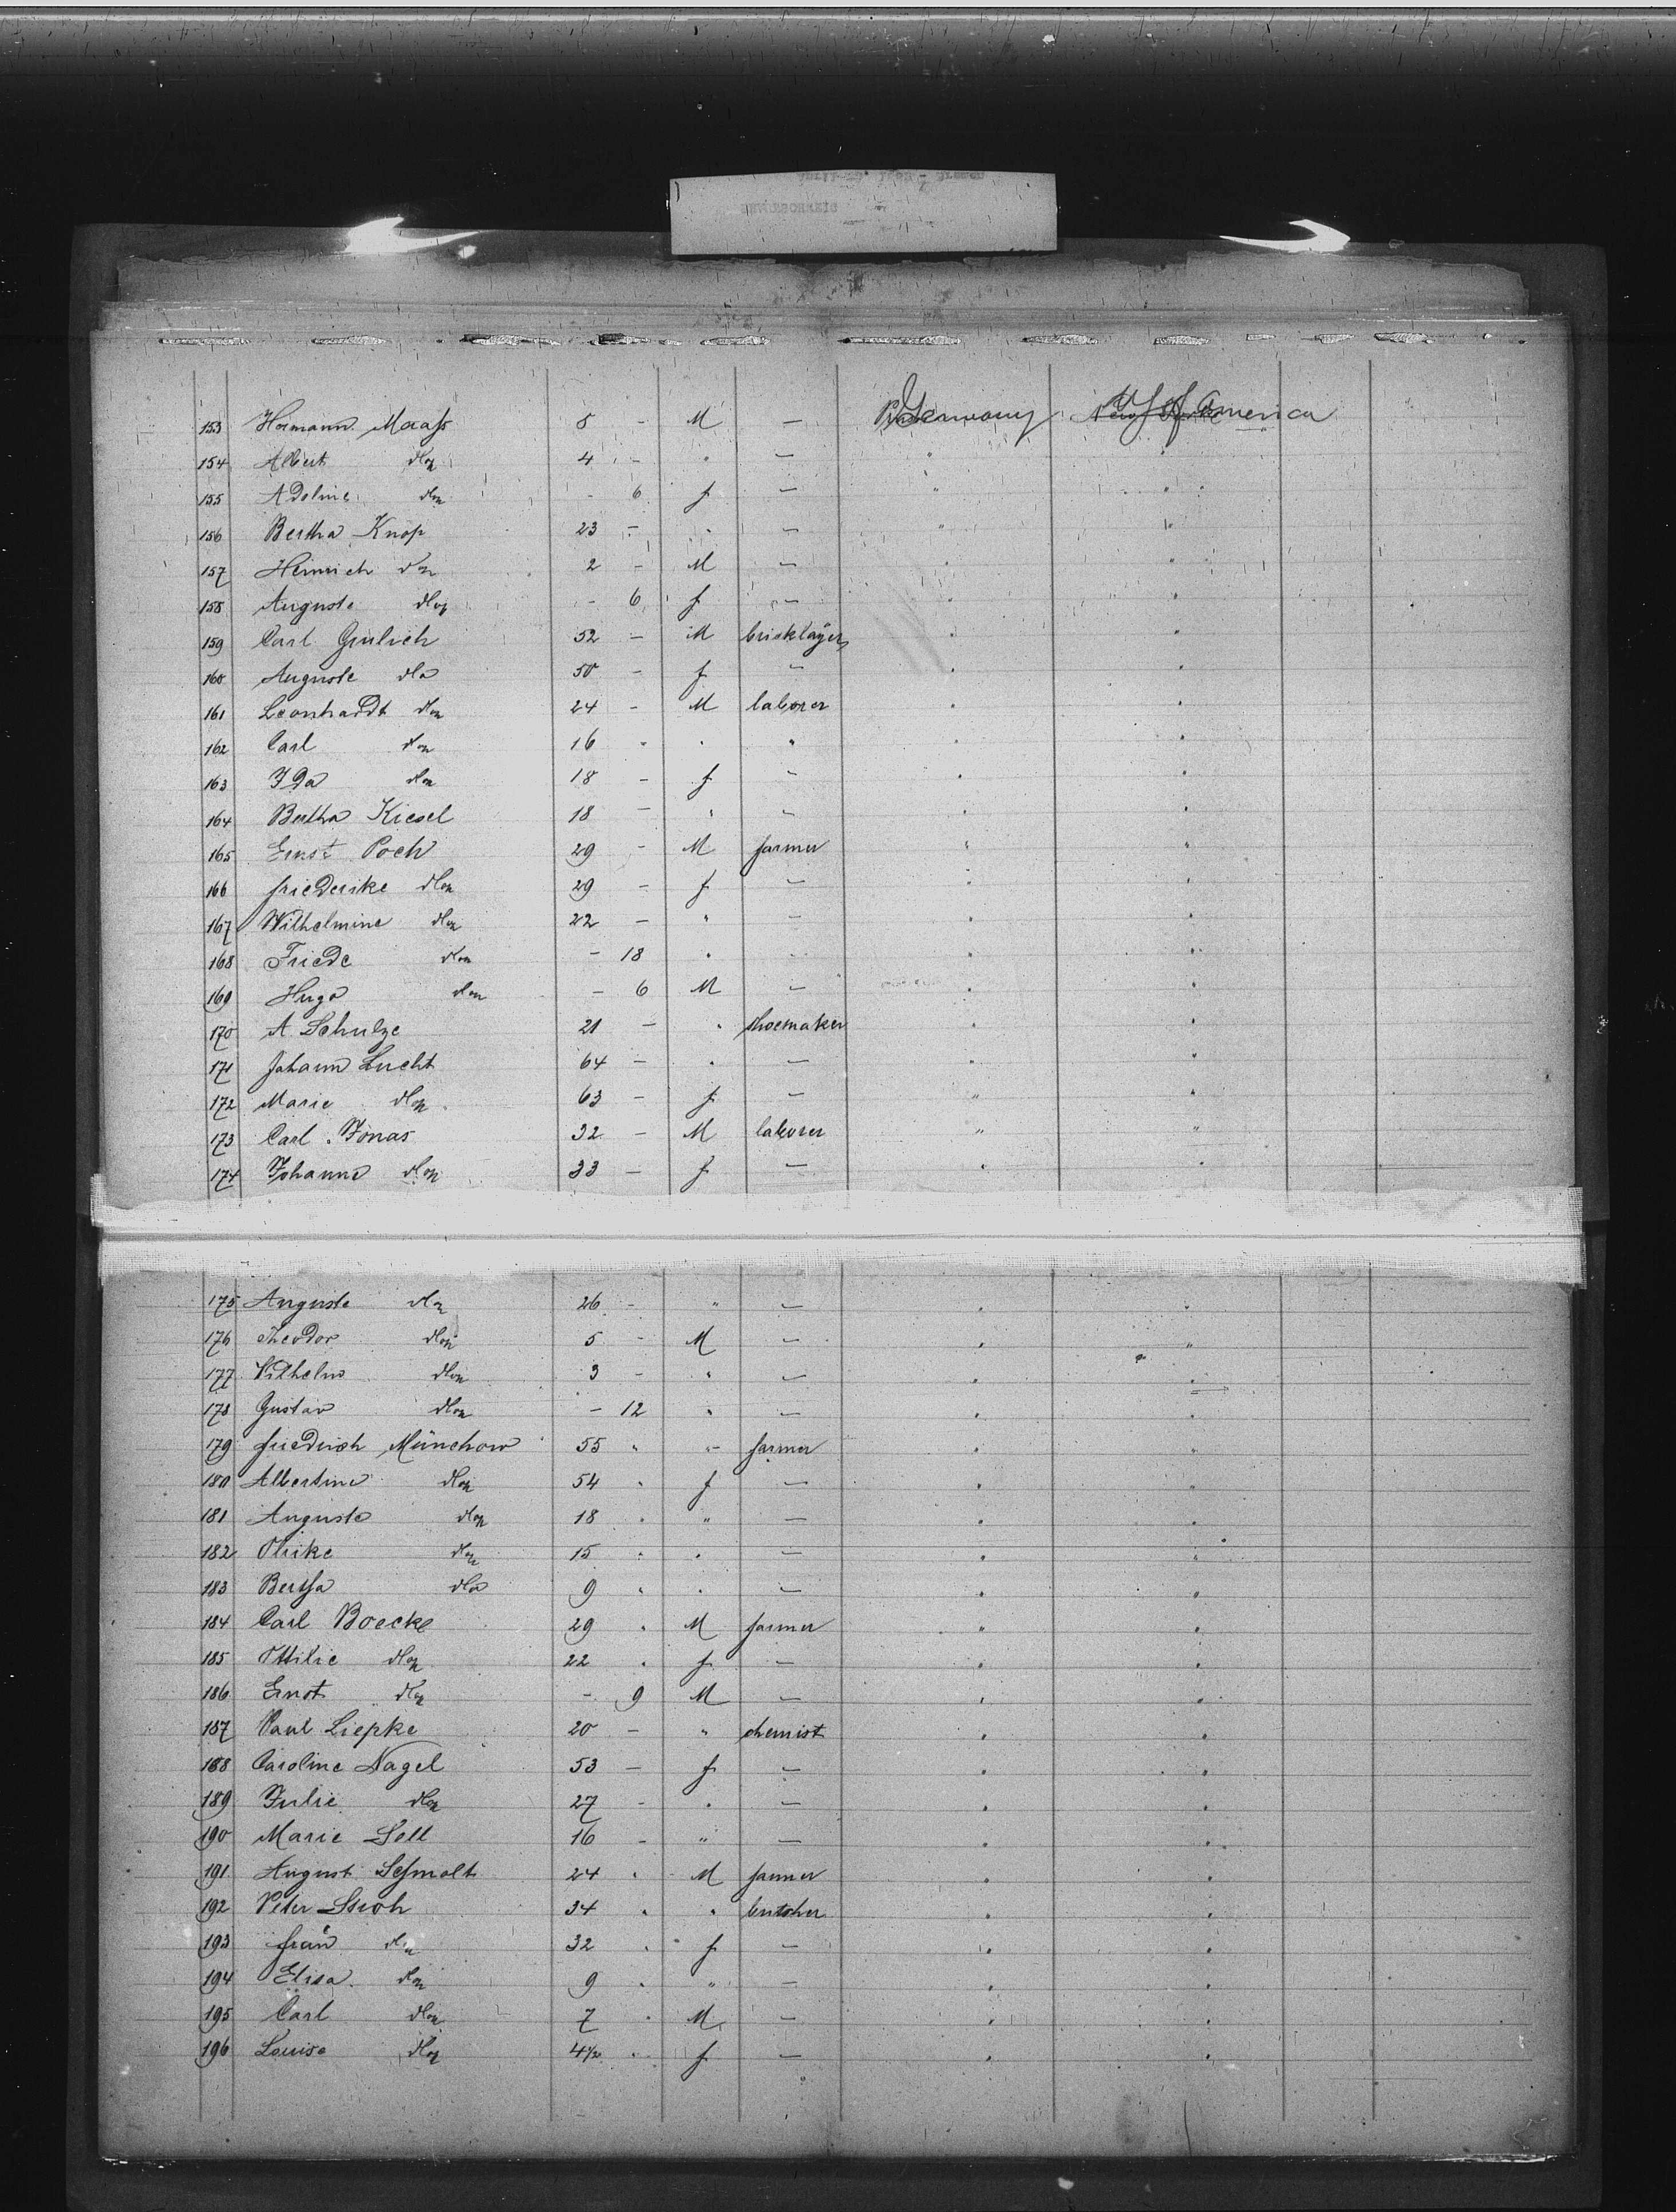 153 Hermann Maaß 5 - M - Germany U S of America
154 Albert do 4 - " - " "
155 Adeline do - 6 f - " "
156 Bertha Knop 23 - " - " "
157 Heinrich do 2 - M - " "
158 Auguste do - 6 f - " "
159 Carl Grulich 52 - M bricklayer " "
160 Auguste do 50 - f - " "
161 Leonhardt do 24 - M laborer " "
162 Carl do 16 - " " " "
163 Ida do 18 - f - " "
164 Bertha Kiesel 18 - " - " "
165 Ernst Poch 29 - M farmer " "
166 friederike do 29 - f - " "
167 Wilhelmine do 22 - " - " "
168 Friede do - 18 " - " "
169 Hugo do - 6 M - " "
170 A Schulze 21 - " shoemaker " "
171 Johann Lucht 64 - " - " "
172 Marie do 63 - f - " "
173 Carl Jonas 32 - M laborer " "
174 Johanne do 33 - f - " "
175 Auguste do 26 - " - " "
176 Theodor do 5 - M - " "
177 Wilhelm do 3 - " - " "
178 Gustav do - 12 " - " "
179 friedrich Münchow 55 " " farmer " "
180 Albertine do 54 " f - " "
181 Auguste do 18 " " - " "
182 Ulrike do 15 " " - " "
183 Bertha do 9 " " - " "
184 Carl Boecke 29 " M farmer " "
185 Ottilie do 22 " f - " "
186 Ernst do - 9 M - " "
187 Paul Liepke 20 - " chemist " "
188 Caroline Nagel 53 - f - " "
189 Julie do 27 - " - " "
190 Marie Sell 16 - " - " "
191 August Schmolt 24 " M farmer " "
192 Peter Stroh 34 " " butcher " "
193 frau do 32 " f - " "
194 Elisa do 9 " " - " "
195 Carl do 7 " M - " "
196 Louise do 4½ " f - " "